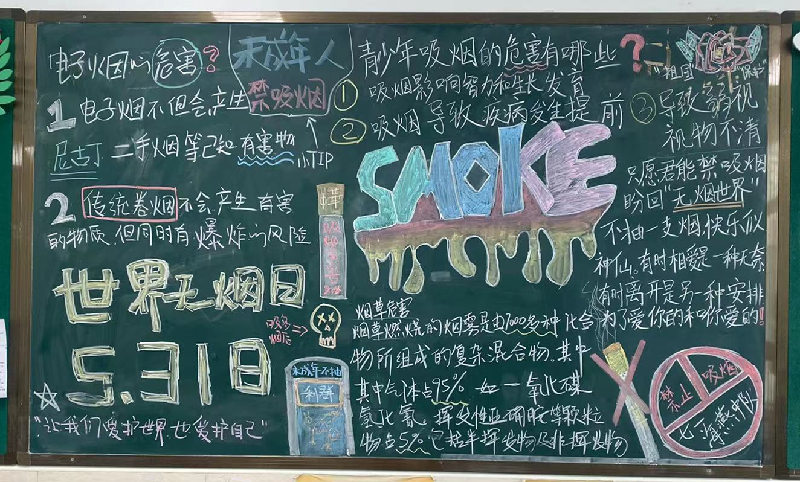 电子火因的危害?
1 电子烟不但会产生
尼古丁 二手烟等已知有害物
小TIP
2 传统卷烟不会产生有害
的物质,但同时有爆炸的风险
世界无烟日
5.31日
"让我们爱护世界也爱护自己"
未成年人
禁吸烟
青少年吸烟的危害有哪些?
① 吸烟影响智力和生长发育
② 吸烟导致疾病发生提前
③ 导致弱视
视物不清
"祖国
SMOKE
只愿君能禁吸烟
盼回"无烟世界"
不抽一支烟快乐似
神仙。有时相爱是一种无奈
有时离开是另一种安排
为了爱你的和你爱的!
烟草危害
烟草燃烧的烟雾是由7000多种化合
物所组成的复杂混合物。其中
其中气体占95% 如一氧化碳
氰化氢 挥发性亚硝胺等颗粒
物占5% 包括半挥发物及非挥发物
未成年不抽
禁止吸烟